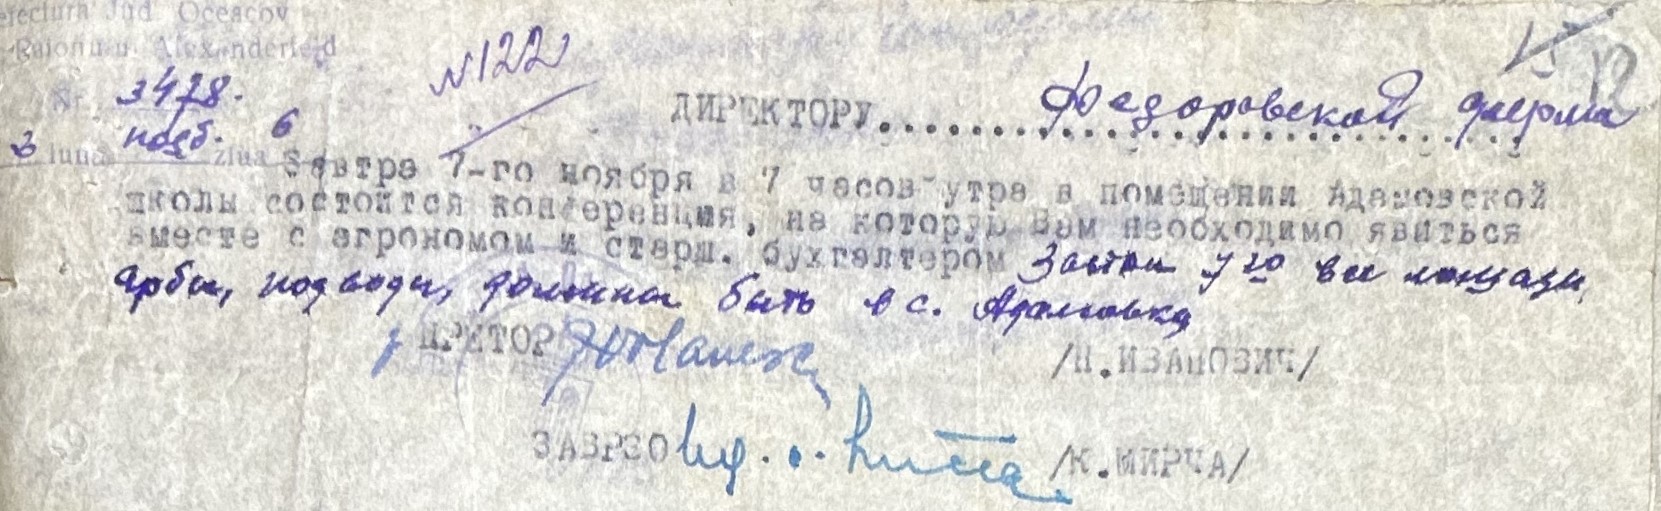 Prefectura Jud. Oceacov
Raionului Alexanderfeld
Nr. 3478.
N 122
12
ДИРЕКТОРУ Федоровской фермы
3 luna нояб. ziua 6
Завтра 7-го ноября в 7 часов утра в помещении Адамовской
школы состоится конференция, на которую Вам необходимо явиться
вместе с агрономом и старш. бухгалтером Завтра 7го все лошади,
арбы, подводы, должны быть в с. Адамовка
ПРЕТОР /П.ИВАНОВИЧ/
ЗАВРЗО /К.МИРЧА/